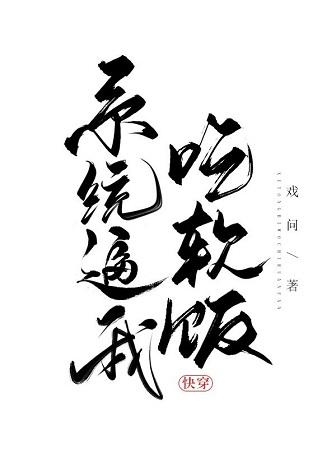 系统逼我
吃软饭
快穿
XITONGBIWOCHIRUANFAN
戏问/著